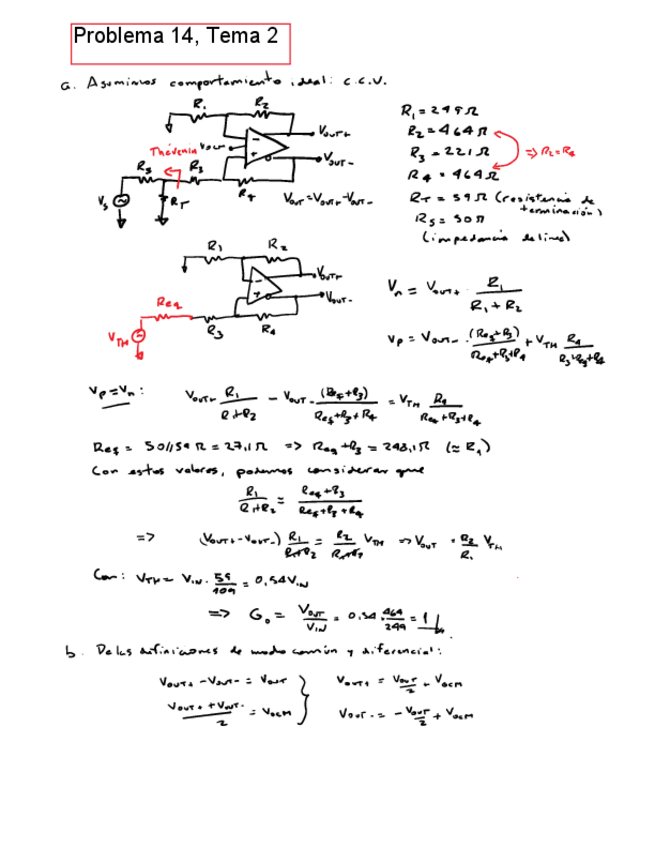 Problema 14, Tema 2
a. Asumimos comportamiento ideal: c.c.v.
R1 R2
R1 = 249Ω
Vout+
R2 = 464Ω
Thévenin Vocm
Vout-
R3 = 221Ω => R2=R4
Rs R3
R4 = 464Ω
Vs RT R4 Vout=Vout+-Vout-
RT = 59Ω (resistencia de terminación)
Rs = 50Ω
(impedancia de línea)
R1 R2
Vout+
Vout-
Vn = Vout+ · R1/(R1+R2)
Req
R3 R4
VTH
Vp = Vout- · (Req+R3)/(Req+R3+R4) + VTH R4/(R3+Req+R4)
Vp=Vn: Vout+ R1/(R1+R2) - Vout- (Req+R3)/(Req+R3+R4) = VTH R4/(Req+R3+R4)
Req = 50//59Ω = 27,1Ω => Req+R3 = 248,1Ω (≈R1)
Con estos valores, podemos considerar que
R1/(R1+R2) = (Req+R3)/(Req+R3+R4)
=> (Vout+-Vout-) R1/(R1+R2) = R2/(R1+R2) VTH => Vout = R2/R1 VTH
Con: VTH = VIN · 59/109 = 0,54VIN
=> G0 = Vout/VIN = 0,54 · 464/249 = 1
b. De las definiciones de modo común y diferencial:
Vout+ - Vout- = Vout } Vout+ = Vout/2 + Vocm
(Vout+ + Vout-)/2 = Vocm } Vout- = -Vout/2 + Vocm